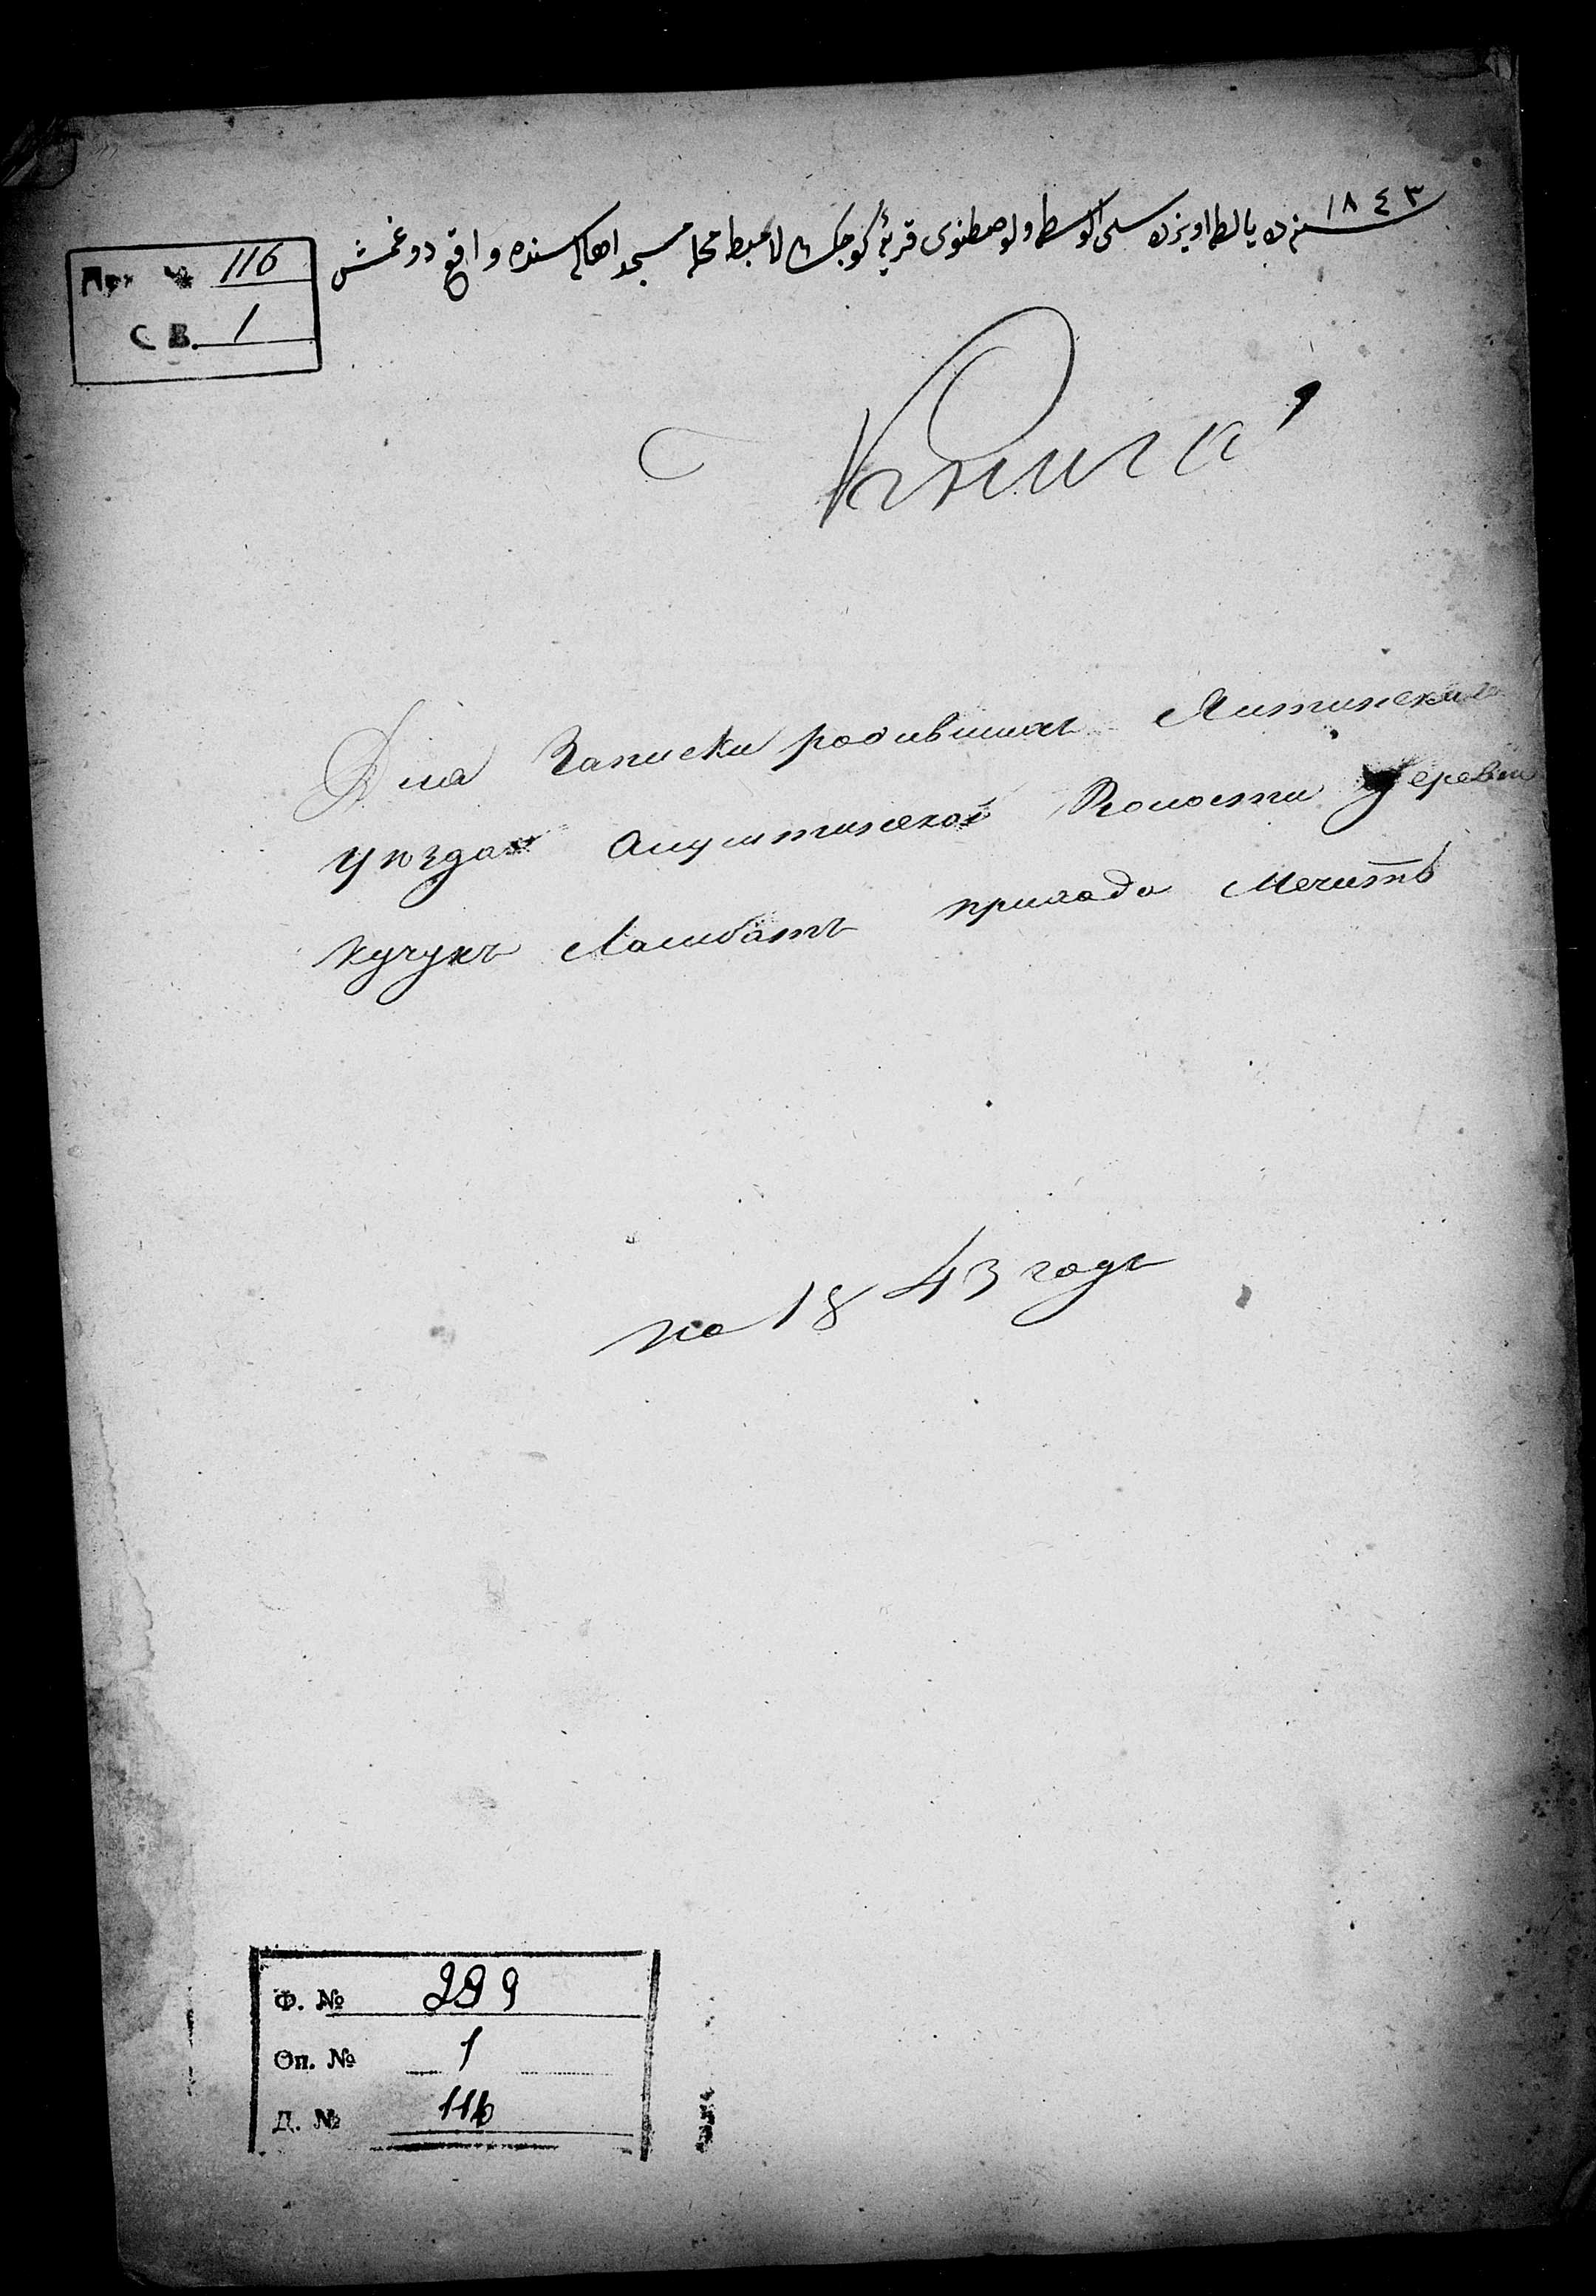 ١٨٤٣
سنه‌ده يالطه اويزده‌سى الوسطه ولوصطنوى قريۀ كوچك لامبط محله مسجد اهاليسنده واقع دوغمش
116
С В. 1
Книга
Для Записки родившихъ Ялтинскаго
уѣзда Алуштинской Волости Деревни
Кучукъ Ламбатъ прихода Мечетѣ
на 1843 годъ
Ф. № 299
Оп. № 1
Д. № 116